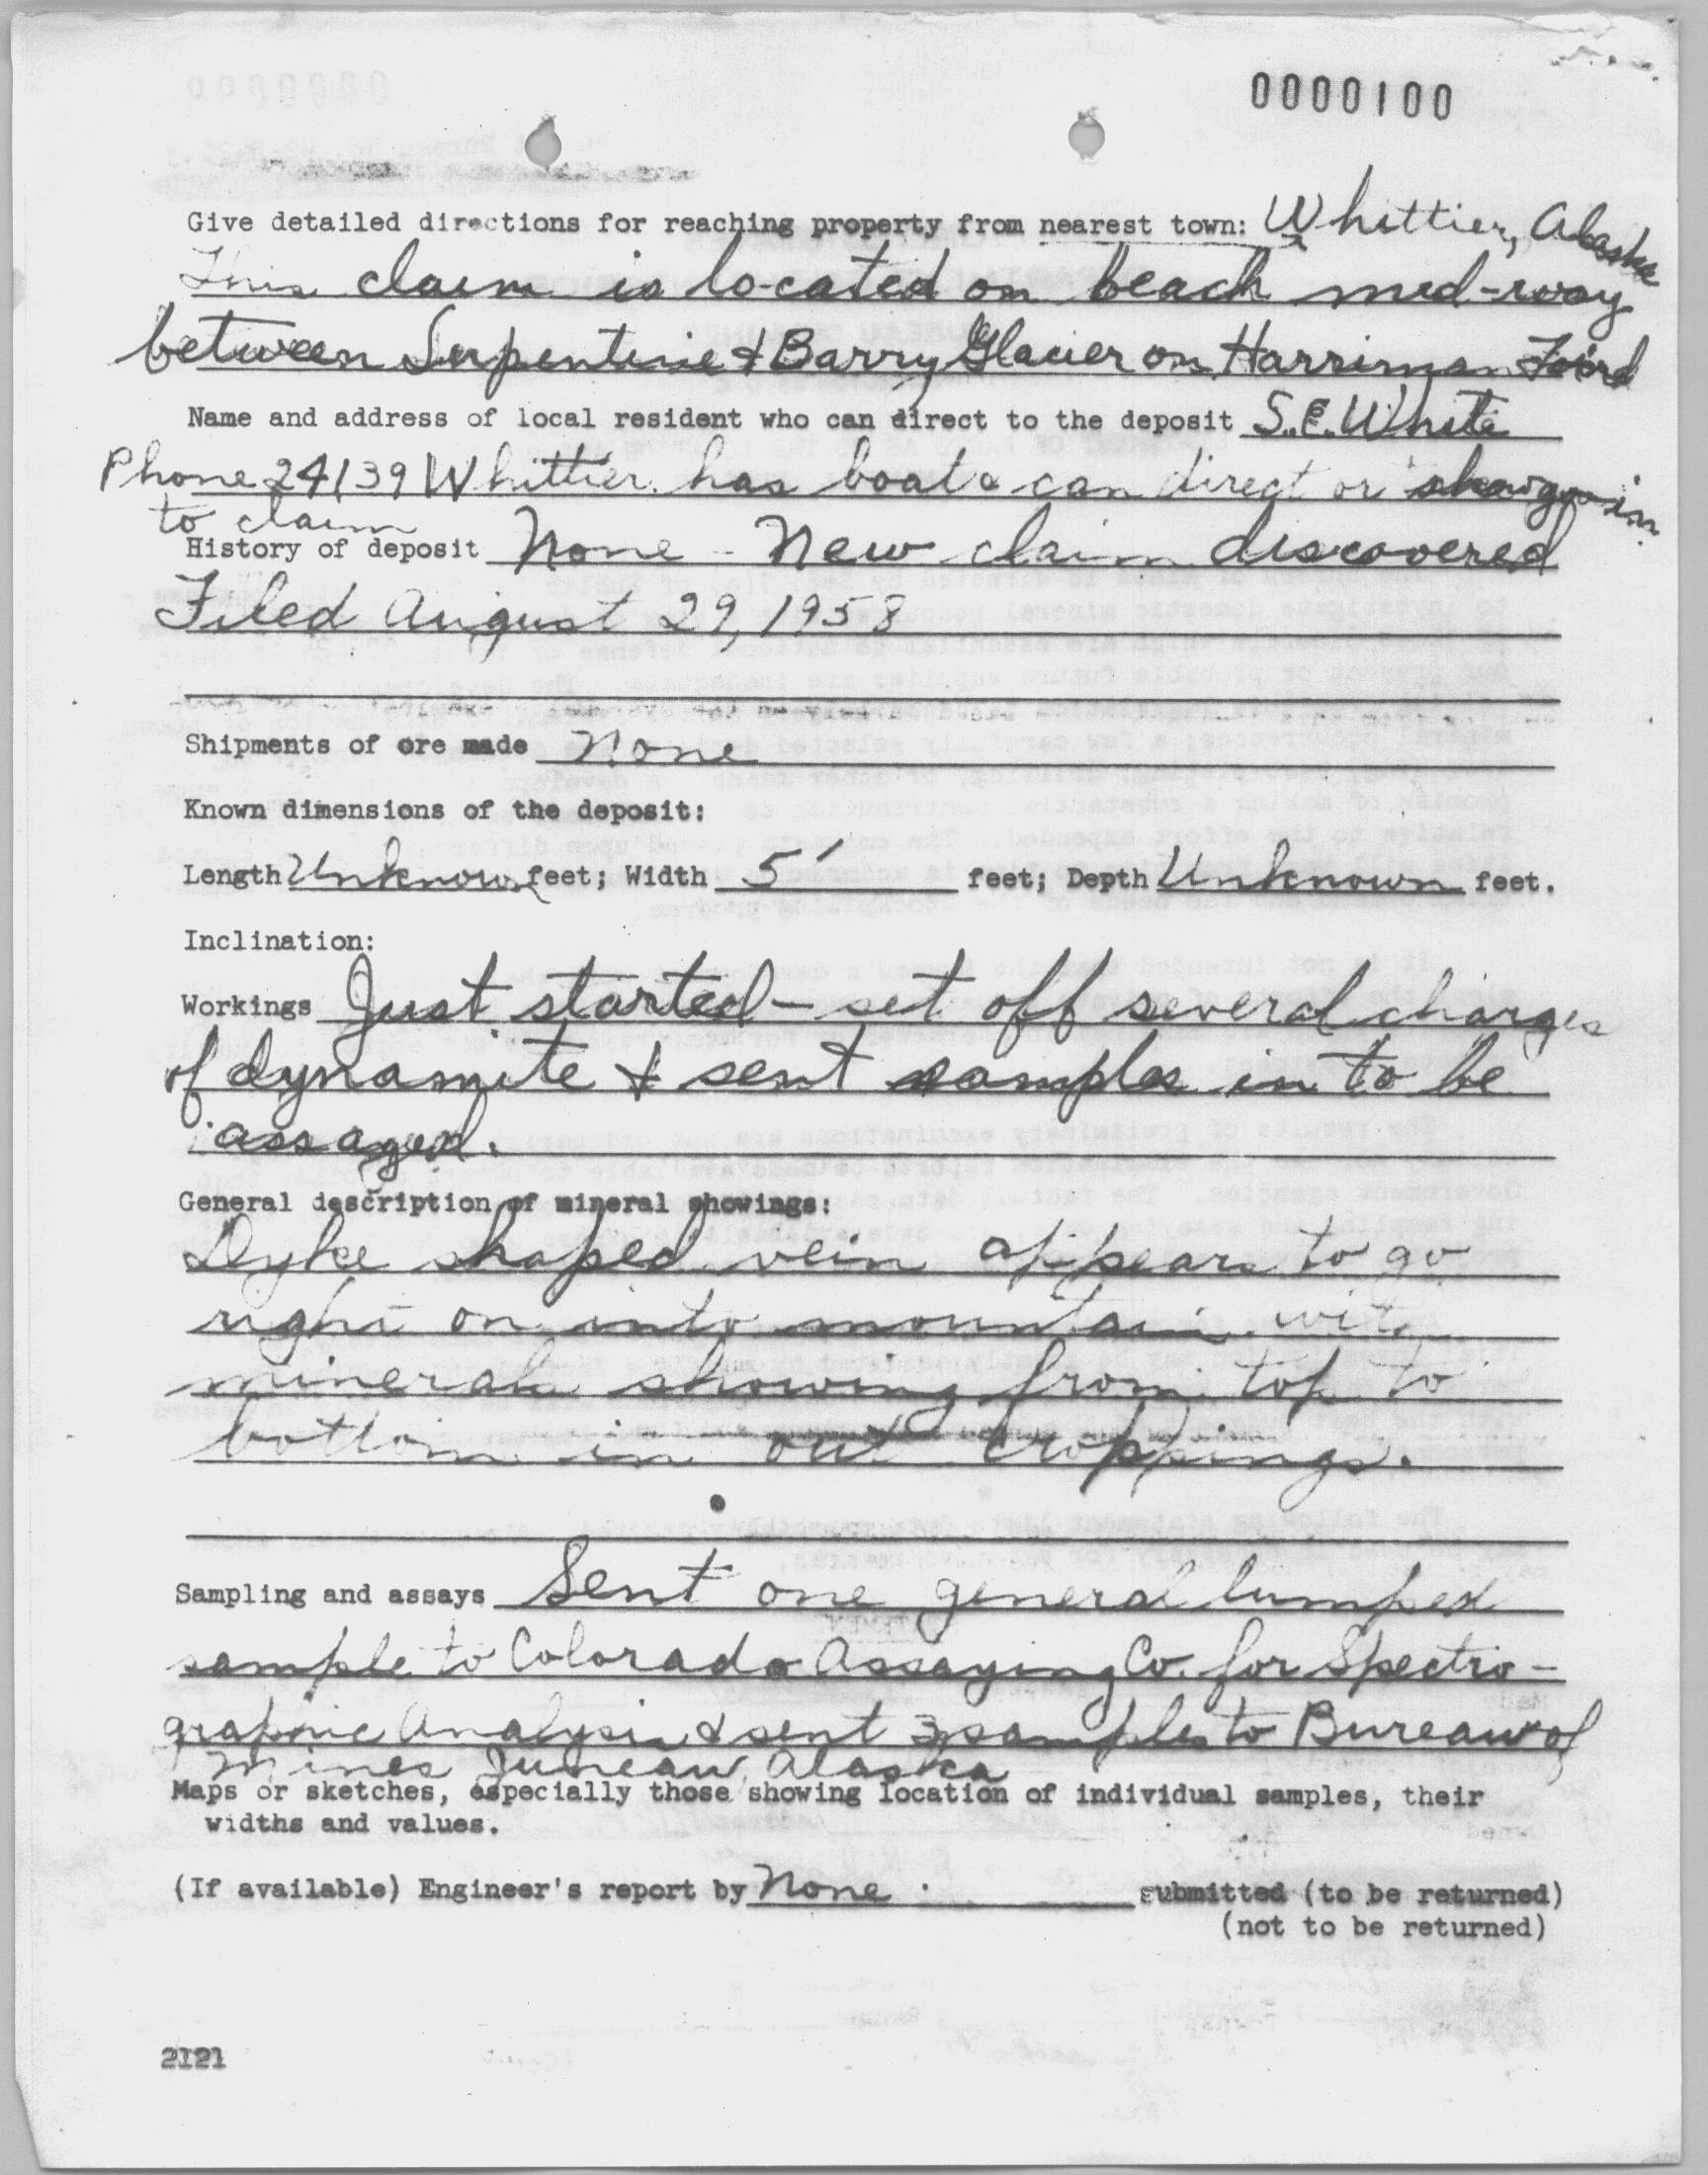 0000100
Give detailed directions for reaching property from nearest town: Whittier, Alaska
This claim is located on beach mid-way
between Serpentine & Barry Glacier on Harriman Fiord
Name and address of local resident who can direct to the deposit S.E. White
Phone 24139 Whittier. has boat & can direct or
to claim
History of deposit None - New claim discovered
Filed August 29, 1958
Shipments of ore made None
Known dimensions of the deposit:
Length Unknown feet; Width 5' feet; Depth Unknown feet.
Inclination:
Workings Just started - set off several charges
of dynamite & sent samples in to be
assayed.
General description of mineral showings:
Dyke shaped vein appears to go
right on into mountain with
minerals showing from top to
bottom in out croppings.
Sampling and assays Sent one general lumped
sample to Colorado Assaying Co. for Spectro-
graphic Analysis & sent 3 samples to Bureau of
Mines Juneau, Alaska
Maps or sketches, especially those showing location of individual samples, their
widths and values.
(If available) Engineer's report by None submitted (to be returned)
(not to be returned)
2121